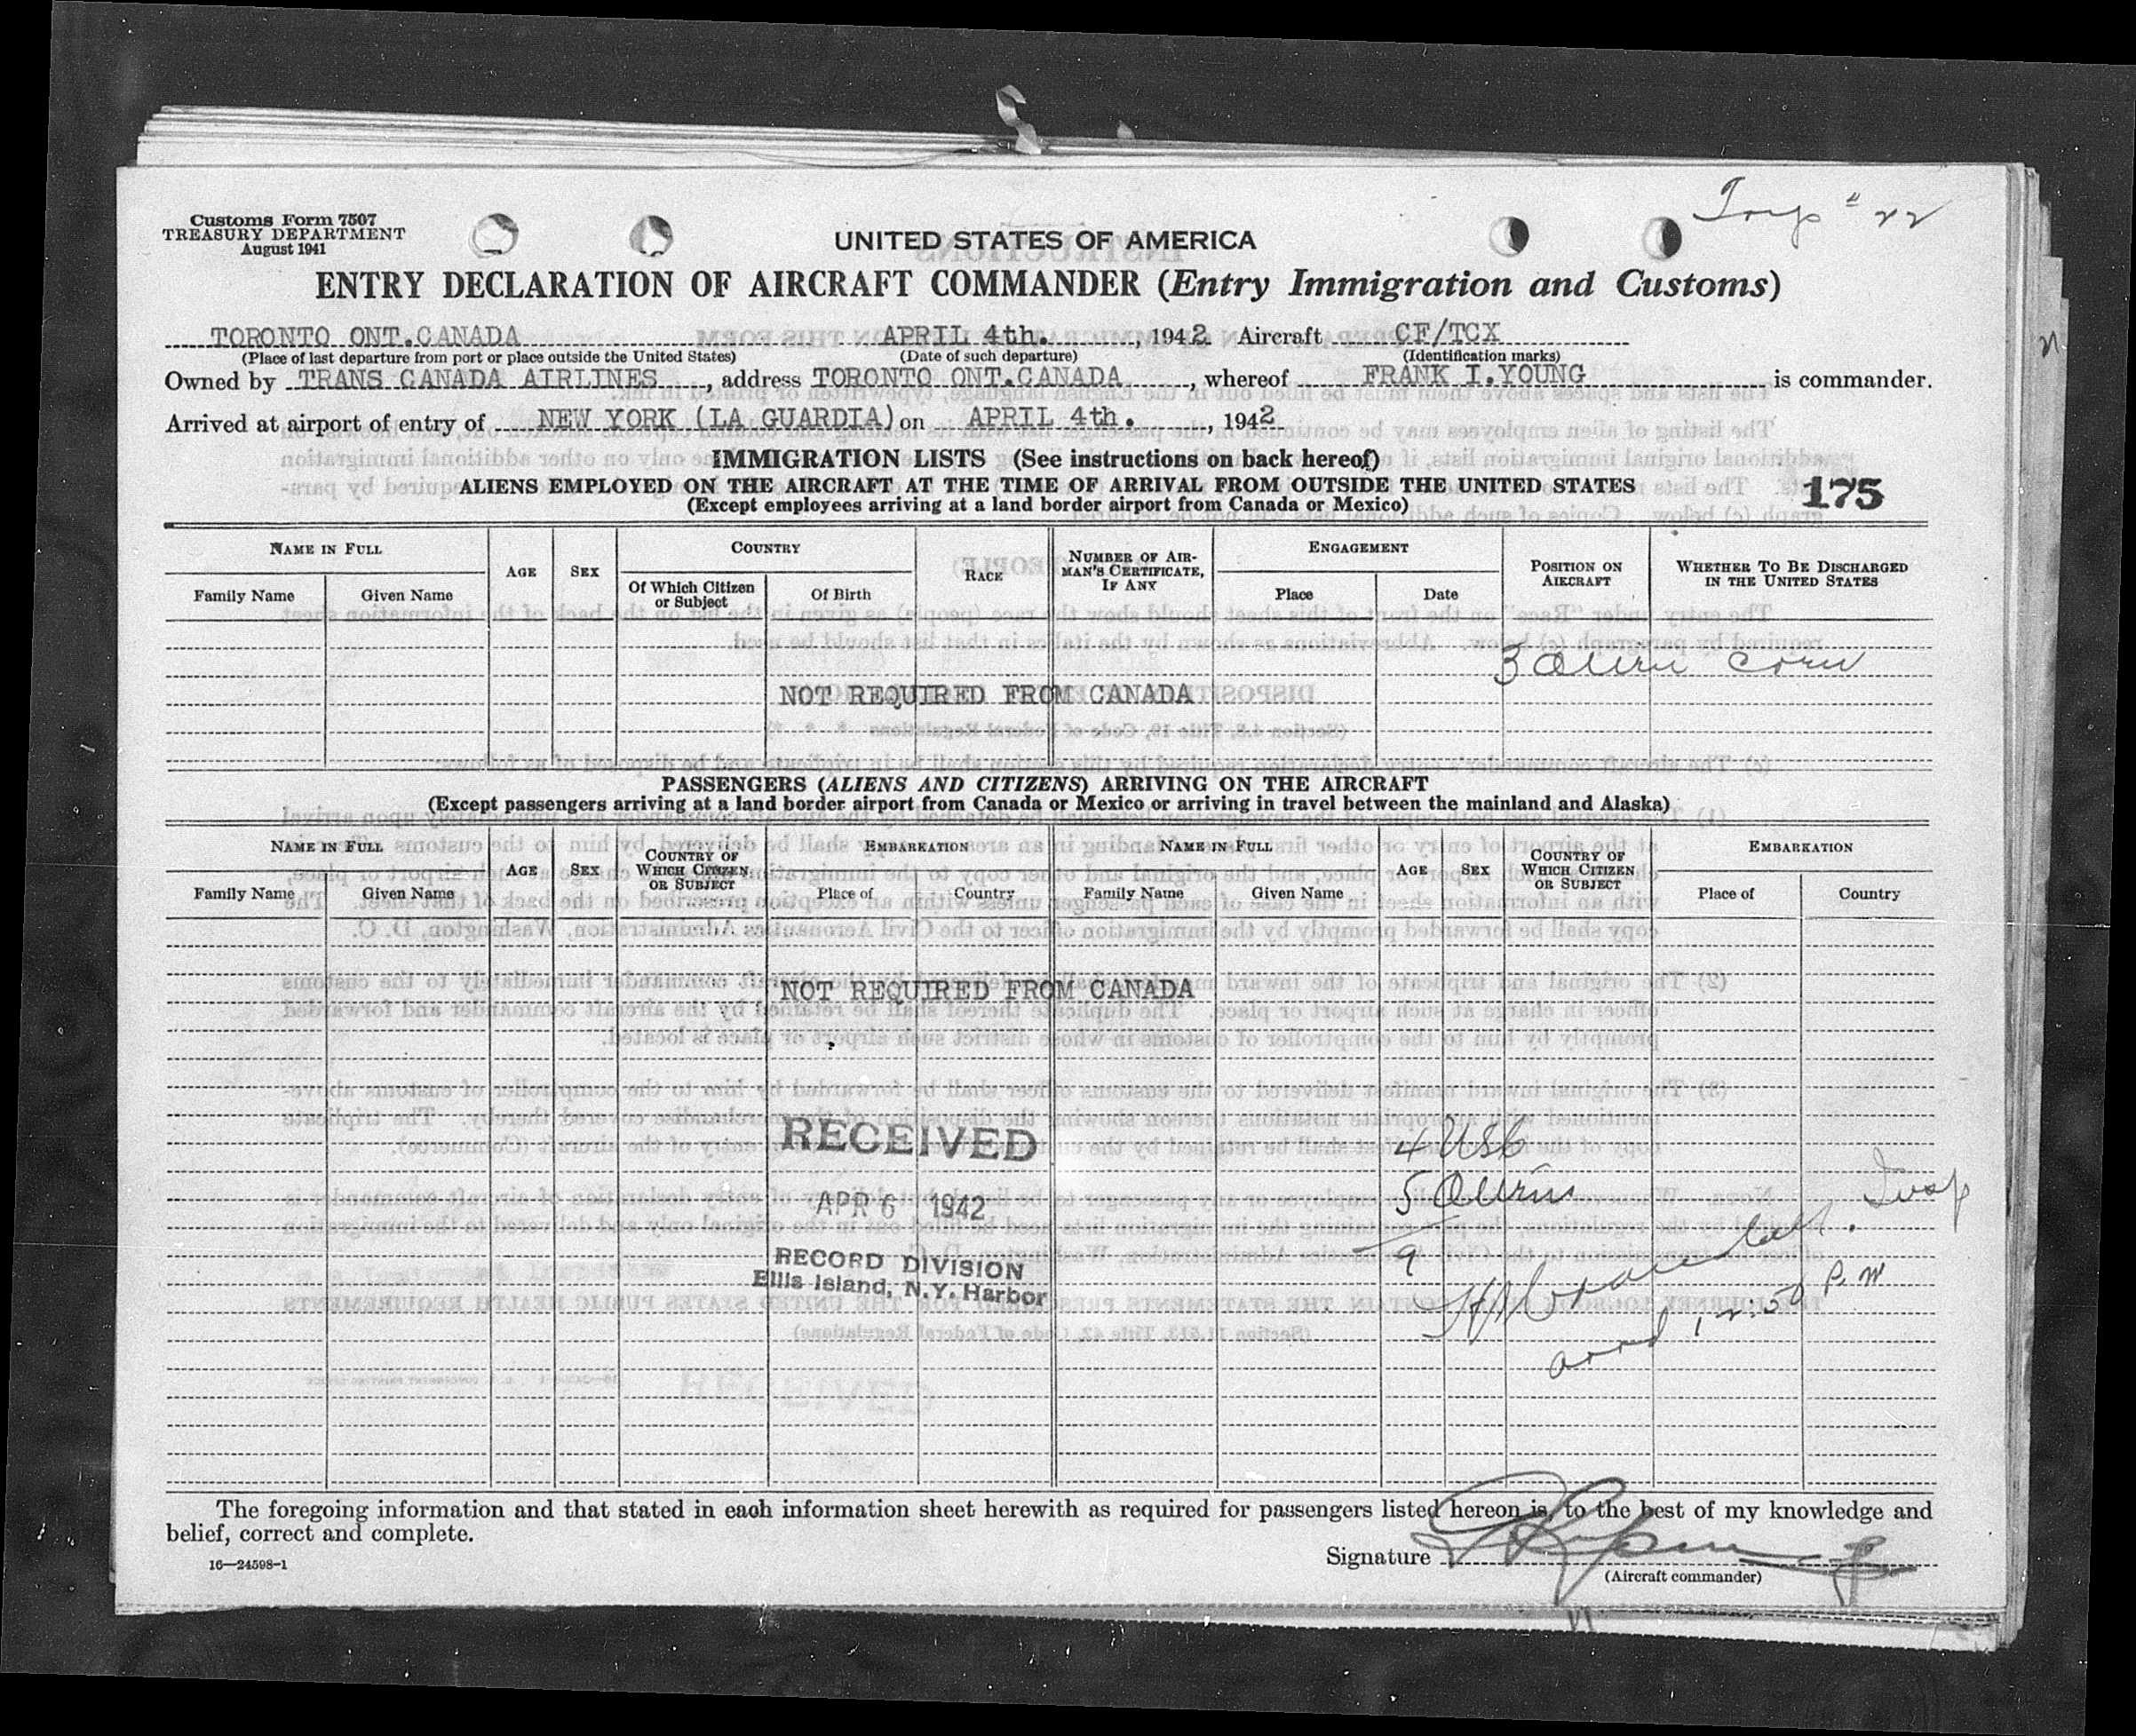 Customs Form 7507
TREASURY DEPARTMENT
August 1941
UNITED STATES OF AMERICA
ENTRY DECLARATION OF AIRCRAFT COMMANDER (Entry Immigration and Customs)
TORONTO ONT.CANADA APRIL 4th. , 1942 Aircraft CF/TCX
(Place of last departure from port or place outside the United States) (Date of such departure) (Identification marks)
Owned by TRANS CANADA AIRLINES , address TORONTO ONT.CANADA , whereof FRANK I.YOUNG is commander.
Arrived at airport of entry of NEW YORK (LA GUARDIA) on APRIL 4th. , 1942
IMMIGRATION LISTS (See instructions on back hereof)
ALIENS EMPLOYED ON THE AIRCRAFT AT THE TIME OF ARRIVAL FROM OUTSIDE THE UNITED STATES
175
(Except employees arriving at a land border airport from Canada or Mexico)
NAME IN FULL AGE SEX COUNTRY RACE NUMBER OF AIRMAN'S CERTIFICATE, IF ANY ENGAGEMENT POSITION ON AIRCRAFT WHETHER TO BE DISCHARGED IN THE UNITED STATES
Family Name Given Name Of Which Citizen or Subject Of Birth Place Date
3 Alien
NOT REQUIRED FROM CANADA
PASSENGERS (ALIENS AND CITIZENS) ARRIVING ON THE AIRCRAFT
(Except passengers arriving at a land border airport from Canada or Mexico or arriving in travel between the mainland and Alaska)
NAME IN FULL AGE SEX COUNTRY OF WHICH CITIZEN OR SUBJECT EMBARKATION NAME IN FULL AGE SEX COUNTRY OF WHICH CITIZEN OR SUBJECT EMBARKATION
Family Name Given Name Place of Country Family Name Given Name Place of Country
NOT REQUIRED FROM CANADA
RECEIVED
4 USC
5 Aliens
APR 6 1942
9
Insp
RECORD DIVISION
Ellis Island, N.Y. Harbor
arrd 12:50 P.M
The foregoing information and that stated in each information sheet herewith as required for passengers listed hereon is, to the best of my knowledge and
belief, correct and complete.
Signature
(Aircraft commander)
16—24598-1